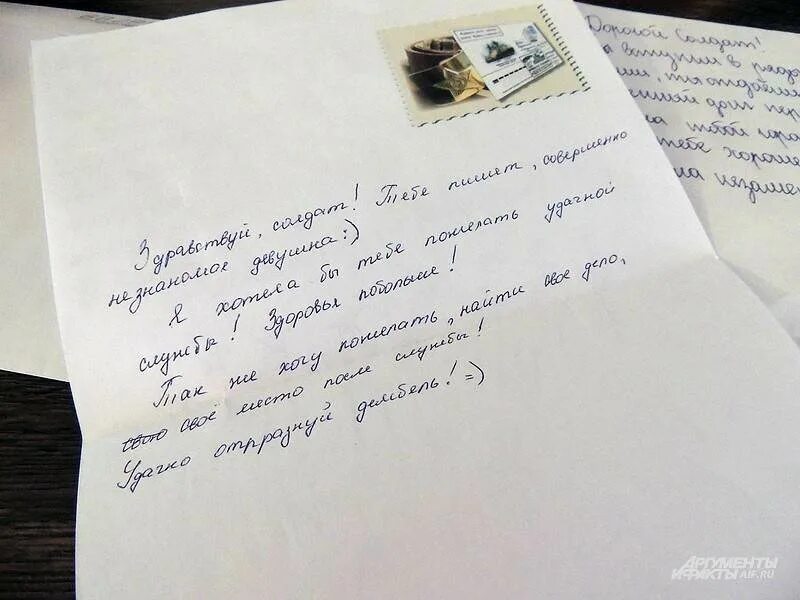 Здравствуй, солдат! Тебе пишет, совершенно
незнакомая девушка:)
Я хотела бы тебе пожелать удачной
службы! Здоровья побольше!
Так же хочу пожелать, найти свое дело,
своё место после службы!
Удачно отпразднуй дембель! =)
Дорогой Солдат!
вступил в ряды
тебе хороше
АРГУМЕНТЫ
И ФАКТЫ AIF.RU